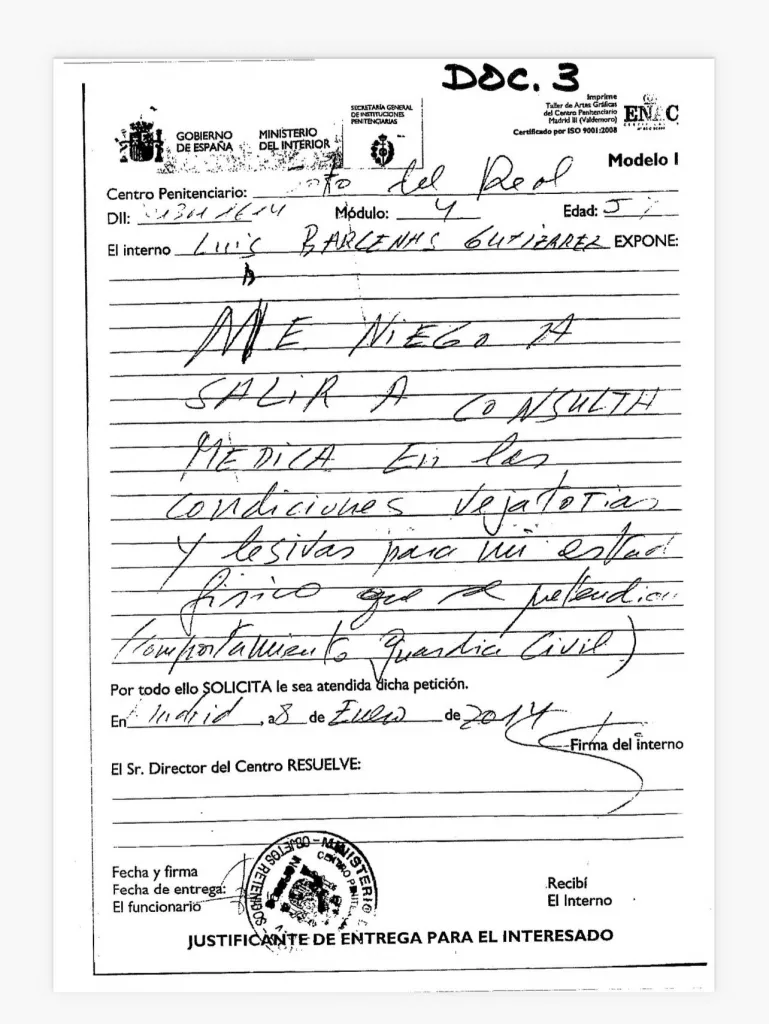 DOC. 3
Imprime
Taller de Artes Gráficas
del Centro Penitenciario
Madrid III (Valdemoro)
Certificado por ISO 9001:2008
ENAC
GOBIERNO
DE ESPAÑA
MINISTERIO
DEL INTERIOR
SECRETARÍA GENERAL
DE INSTITUCIONES
PENITENCIARIAS
Modelo I
Centro Penitenciario: del Real
DII: Módulo: 4 Edad:
El interno LUIS BARCENAS GUTIERREZ EXPONE:
ME NIEGO A
SALIR A CONSULTA
MEDICA En las
condiciones vejatorias
y lesivas para mi estado
físico que se pretendía
(comportamiento Guardia Civil)
Por todo ello SOLICITA le sea atendida dicha petición.
En Madrid, a 8 de Enero de 2014
Firma del interno
El Sr. Director del Centro RESUELVE:
Fecha y firma
Fecha de entrega:
El funcionario
Recibí
El Interno
MINISTERIO
OBJETOS RETENIDOS
CENTRO
JUSTIFICANTE DE ENTREGA PARA EL INTERESADO